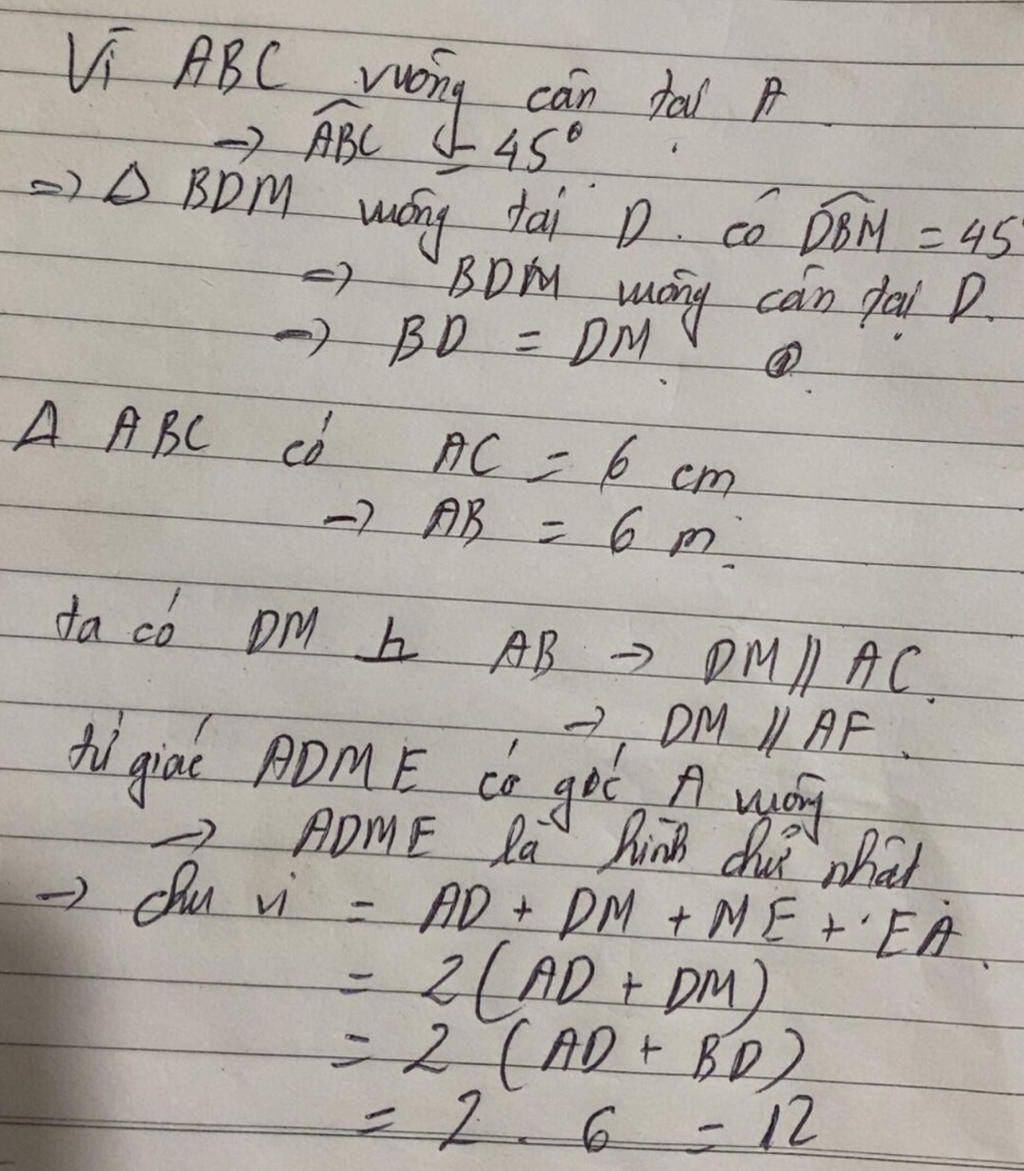 Vì ABC vuông cân tại A
→ ABC = 45°
=> Δ BDM vuông tại D. có DBM = 45°
=> BDM vuông cân tại D.
→ BD = DM
Δ ABC có AC = 6 cm
→ AB = 6 m
ta có DM ⊥ AB → DM // AC.
→ DM // AF.
tứ giác ADME có góc A vuông
→ ADME là hình chữ nhật
→ chu vi = AD + DM + ME + EA.
= 2(AD + DM)
= 2 (AD + BD)
= 2 . 6 = 12